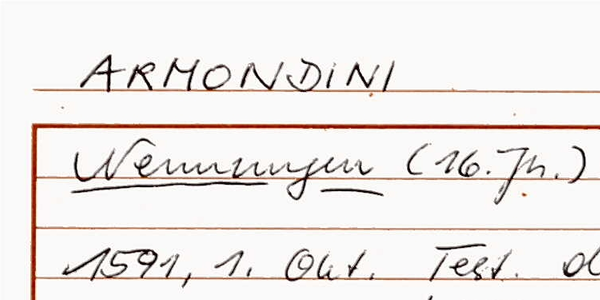 ARMONDINI
Nennungen (16. Jh.)
1591, 1. Okt. Test. d